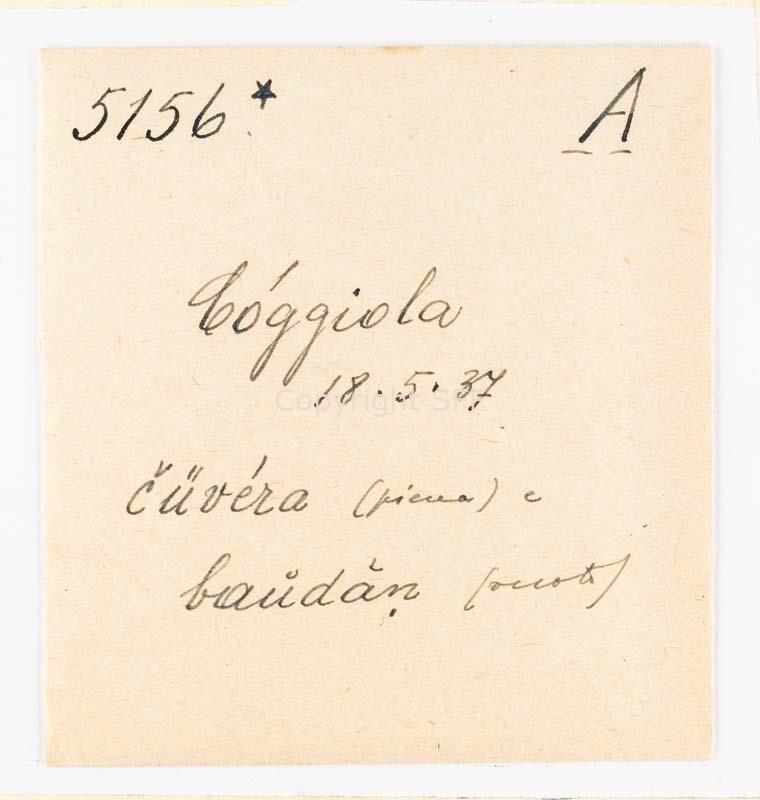 5156* A
Cóggiola
18.5.37
Copyright SP
čüvéra (piena) e
baůdăṇ (vuoto)